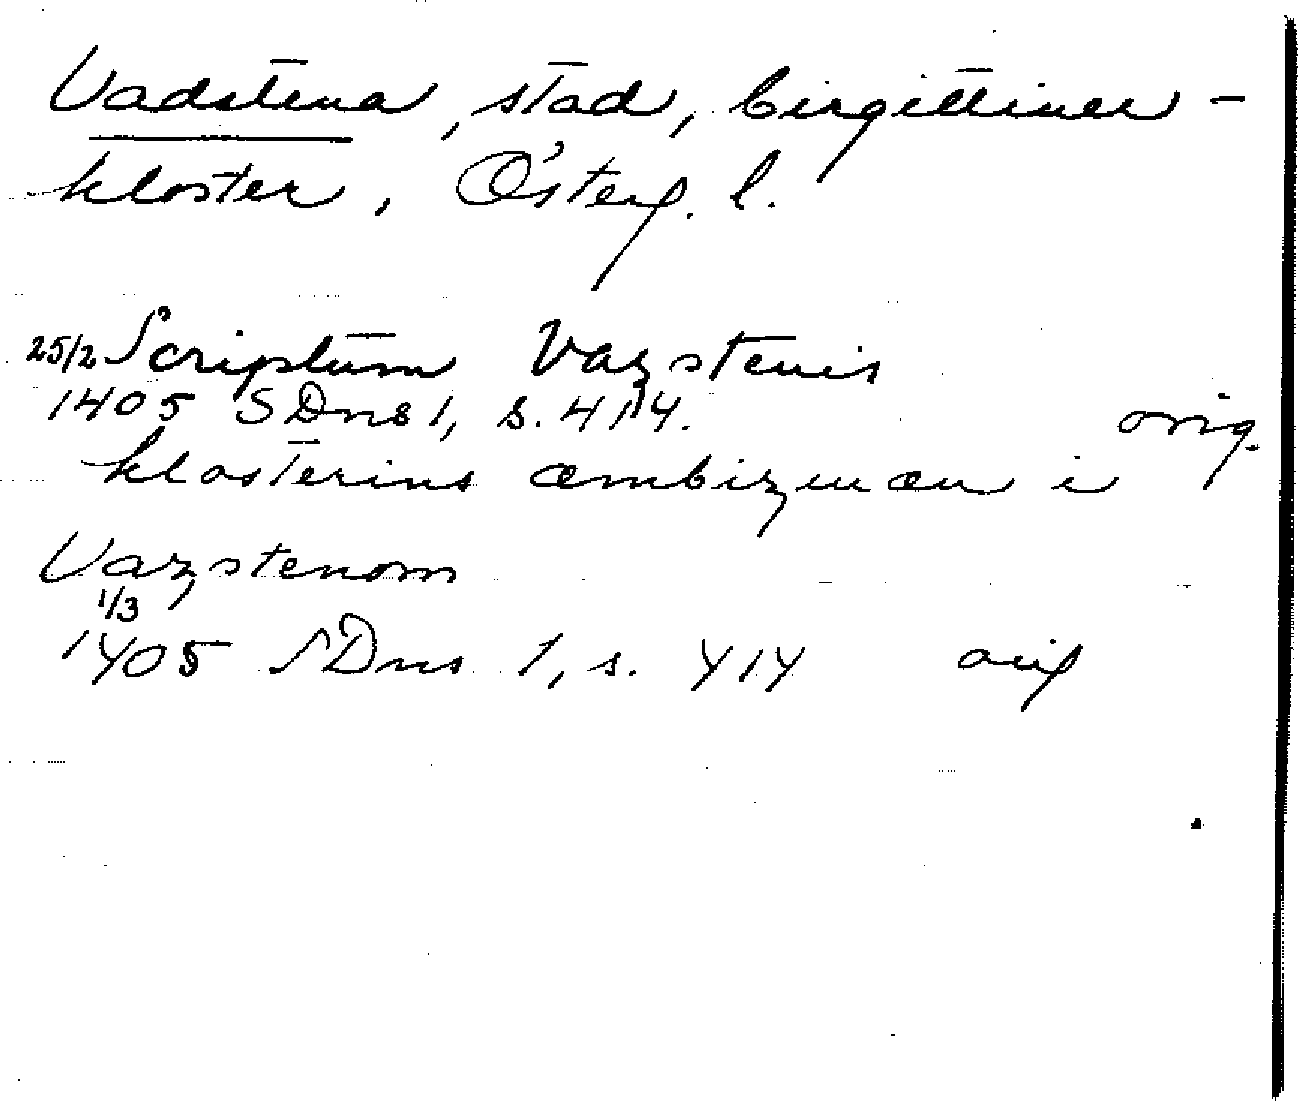 Vadstena, stad, birgittiner-
kloster, Österg. l.
25/2 Scriptum Vazstenis
1405 SDns 1, s. 414. orig.
klosterins æmbizmæn i
Vazstenom
1/3
1405 SDns 1, s. 414 orig